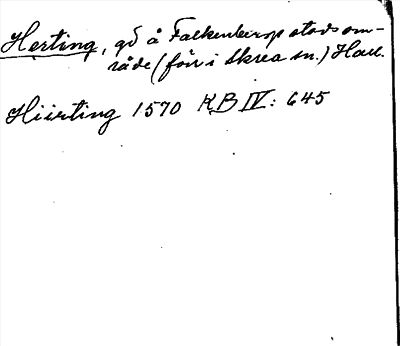 Herting, gd å Falkenbergs stadsom-
råde (förr i Skrea sn.) Hall.
Hiirting 1570 KB IV: 645